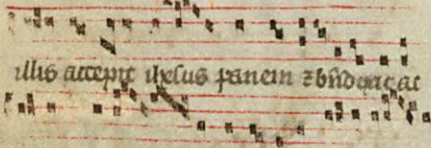 illis accepit ihesus panem ⁊ bndixit ac